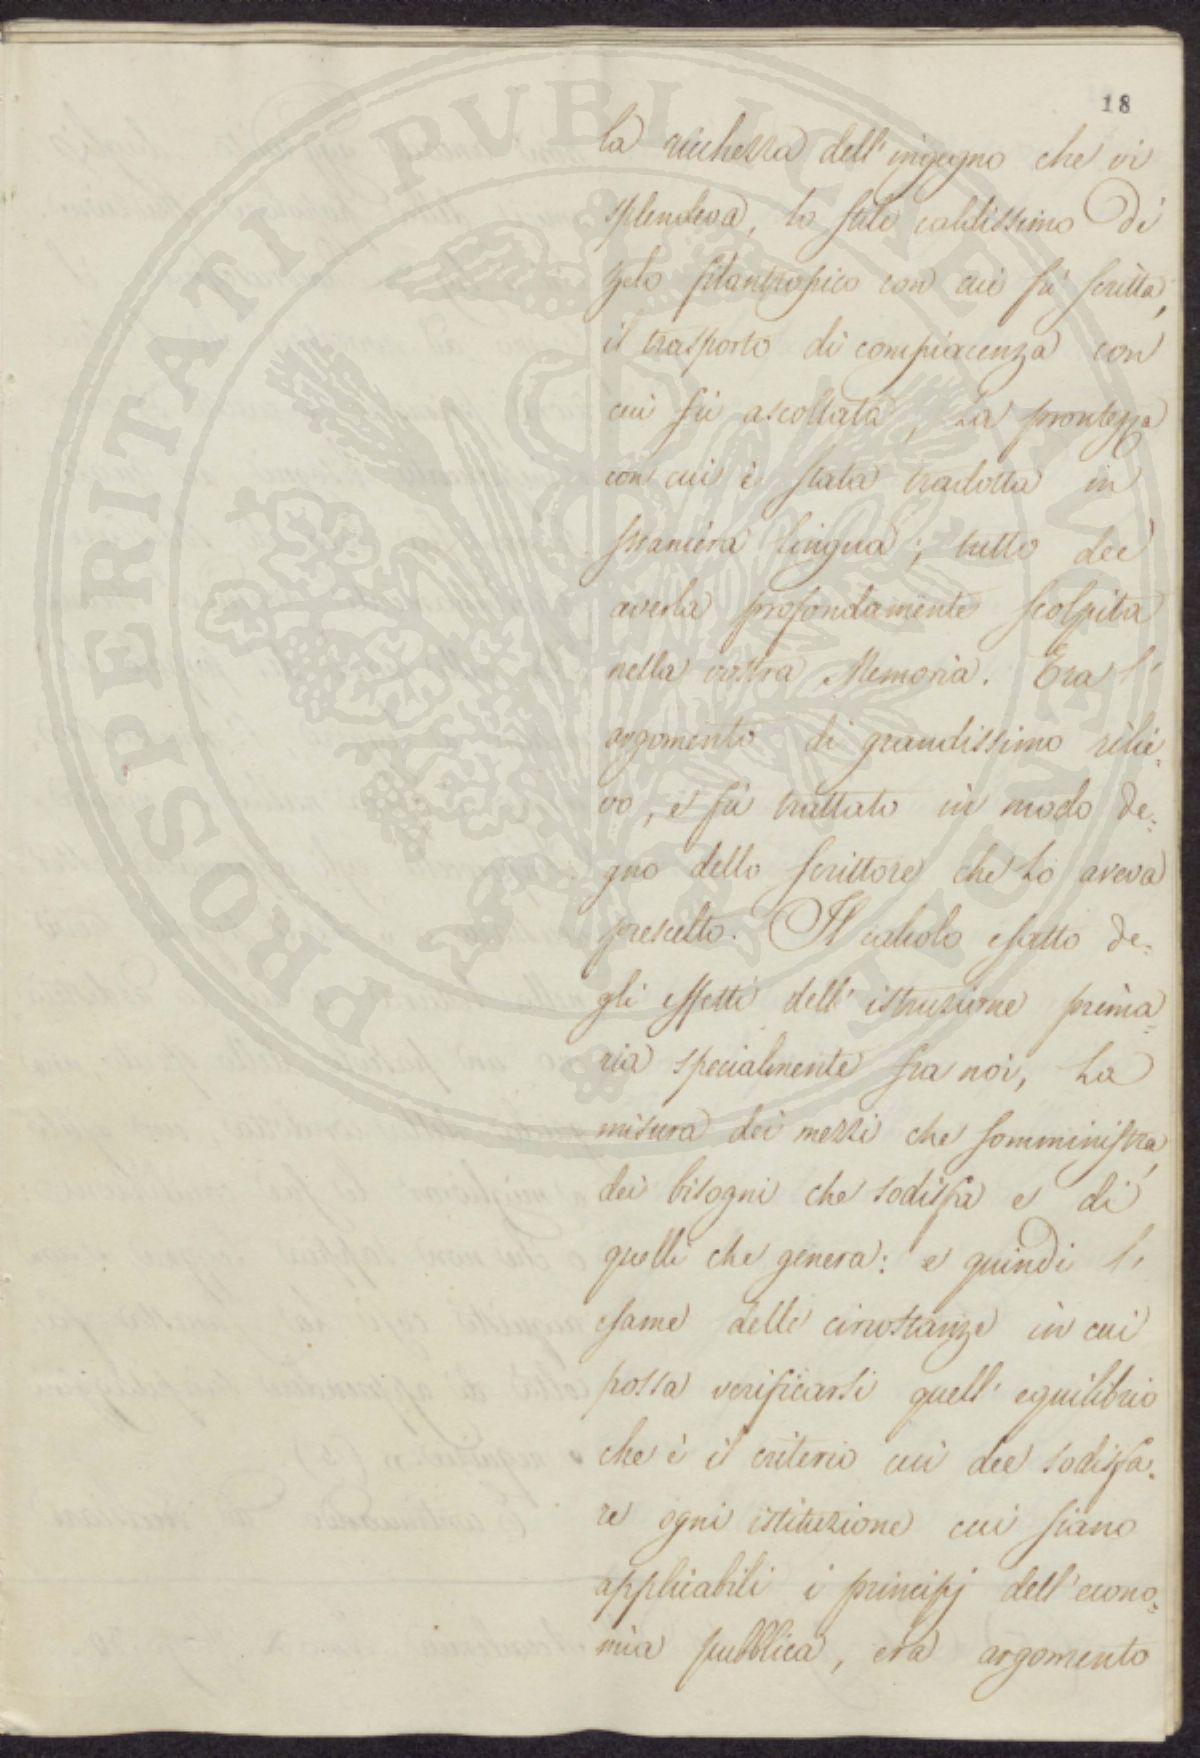 18
la ricchezza dell'ingegno che vi
splendeva, lo stile caldissimo di
zelo filantropico con cui fù scritta,
il trasporto di compiacenza con
cui fù ascoltata, La prontezza
con cui è stata tradotta in
straniera lingua; tutto dee
averla profondamente scolpita
nella vostra Memoria. Era l'
argomento di grandissimo rilie-
vo, e fù trattato in modo de=
gno dello scrittore che Lo aveva
prescelto. Il calcolo esatto de=
gli effetti dell'istruzione prima=
ria specialmente fra noi, La
misura dei mezzi che somministra,
dei bisogni che sodisfa e di
quelli che genera: e quindi l'
esame delle circostanze in cui
possa verificarsi quell'equilibrio
che è il criterio cui dee sodisfa-
re ogni istituzione cui siano
applicabili i principj dell'econo=
mia pubblica, era argomento
PROSPERITATI PVBLICAE